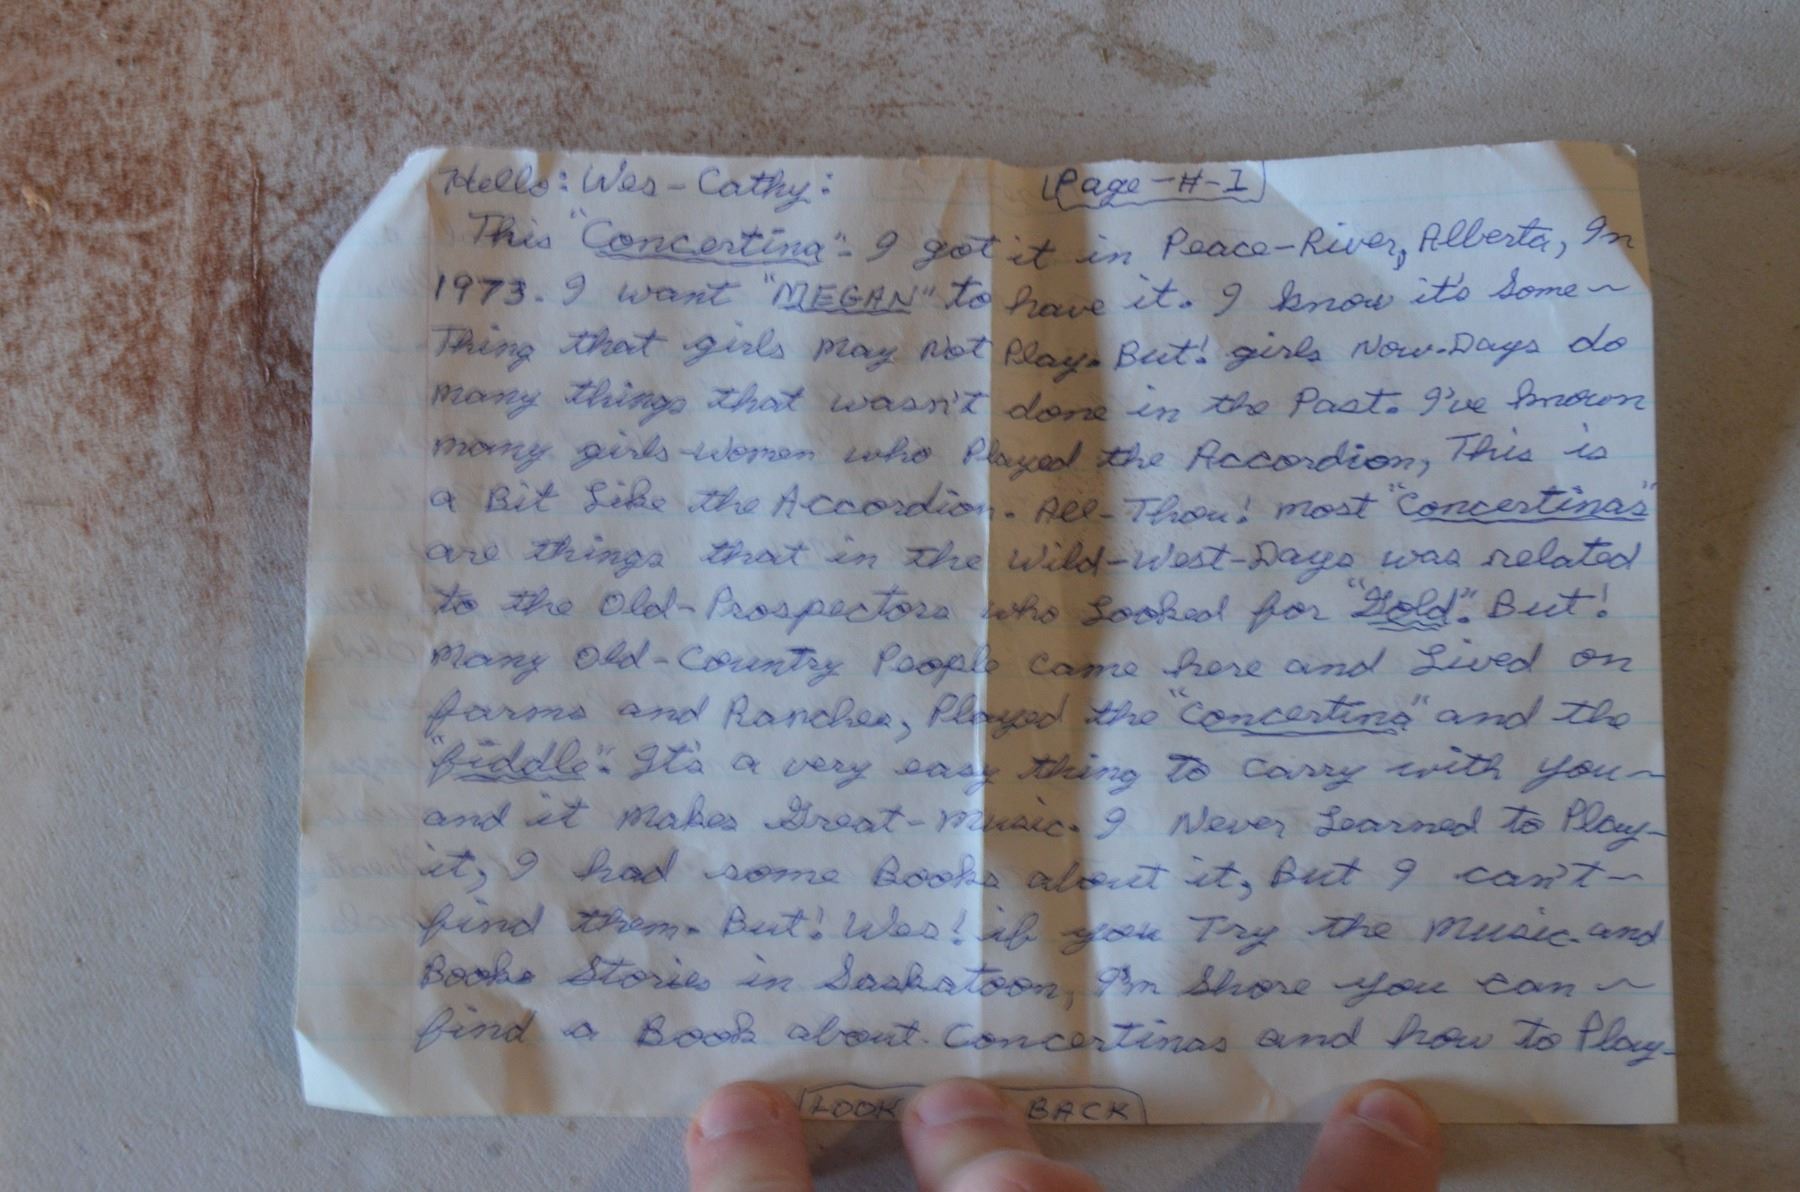 Hello: Wes-Cathy: Page-#-1
This "Concertina"- I got it in Peace-River, Alberta, In
1973. I want "MEGAN" to have it. I know it's Some~
Thing that girls may Not Play. But! girls Now-Days do
many things that wasn't done in the Past. I've known
many girls-women who Played the Accordion, This is
a Bit Like the Accordion. All-Thou! most "Concertinas"
are things that in the Wild-West-Days was related
to the Old-Prospectors who Looked for "Gold". But!
Many Old-Country People came here and Lived on
farms and Ranches, Played the "Concertina" and the
"fiddle". It's a very easy thing to carry with you~
and it Makes Great-Music. I Never Learned to Play-
it, I had some Books about it, But I can't~
find them. But! Wes! if you Try the Music-and
Books Stories in Saskatoon, I'm Shore you can~
find a Book about Concertinas and how to Play-
LOOK BACK